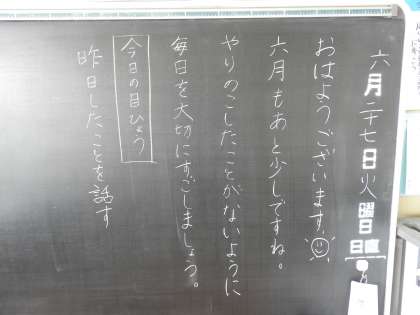 六月二十七日火曜日
日直
おはようございます。
六月もあと少しですね。
やりのこしたことがないように
毎日を大切にすごしましょう。
今日の目ひょう
昨日したことを話す